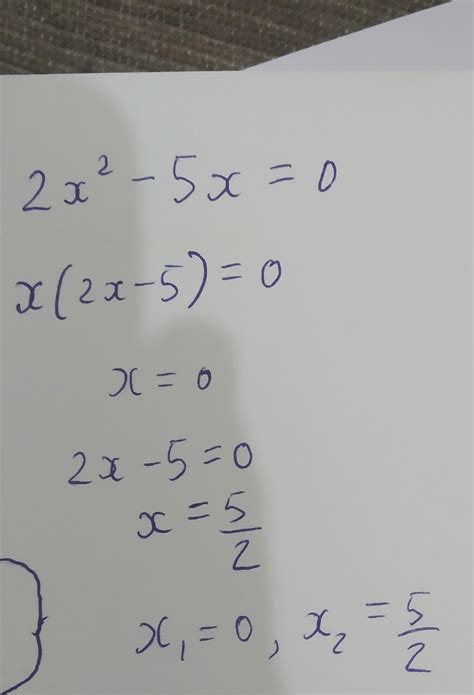 2x² - 5x = 0
x(2x-5) = 0
x = 0
2x - 5 = 0
x = 5/2
x₁ = 0, x₂ = 5/2